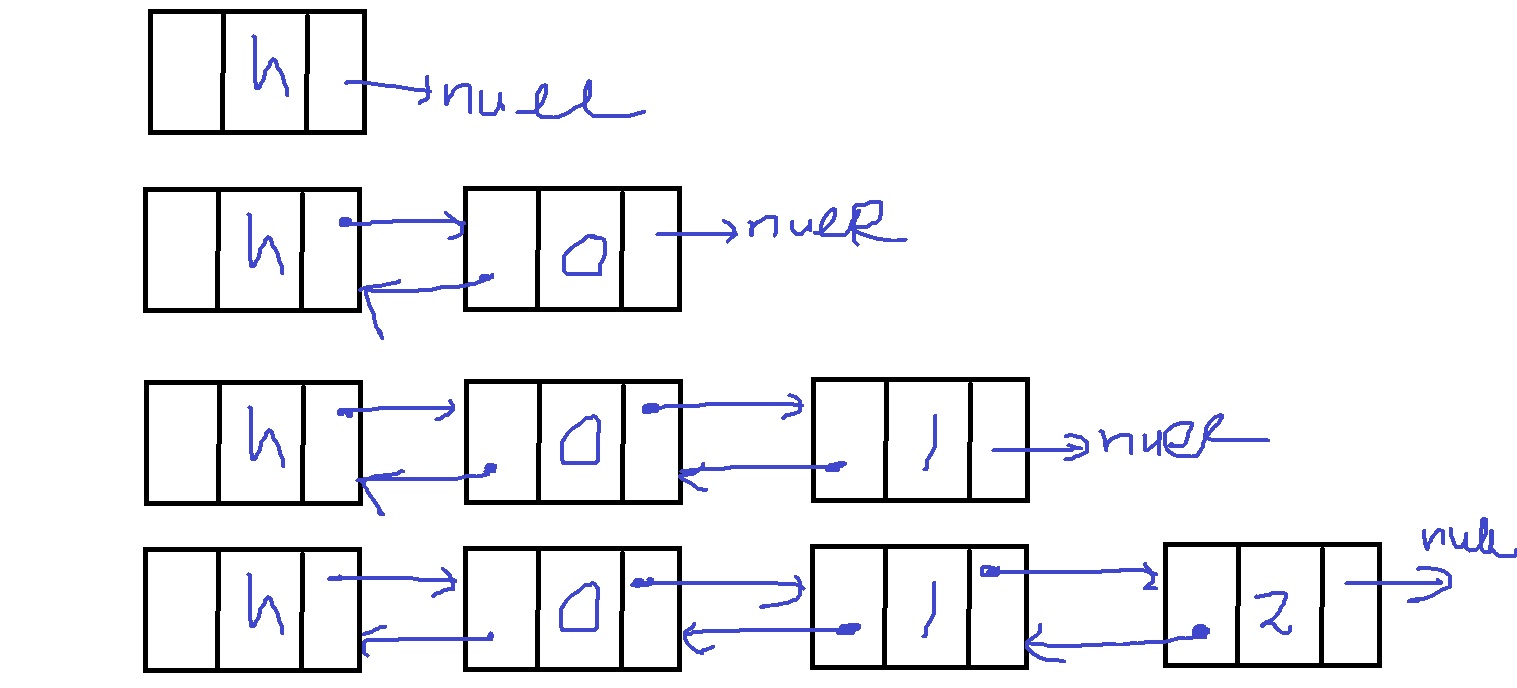 h null
h 0 null
h 0 1 null
h 0 1 2 null